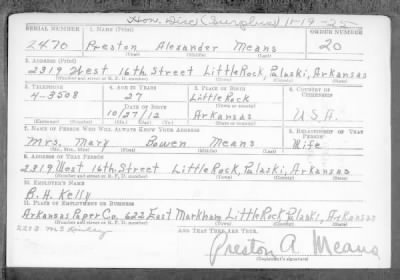 Hon. Disc (Surplus) 11-19-25
SERIAL NUMBER 1. NAME (Print) ORDER NUMBER
2470 Preston Alexander Means 20
(First) (Middle) (Last)
2. ADDRESS (Print)
2319 West 16th Street Little Rock, Pulaski, Arkansas
(Number and street or R. F. D. number) (Town) (County) (State)
3. TELEPHONE 4. AGE IN YEARS 5. PLACE OF BIRTH 6. COUNTRY OF CITIZENSHIP
4-3508 27 Little Rock
DATE OF BIRTH (Town or county)
10/27/12 Arkansas U.S.A.
(Mo.) (Day) (Yr.) (State or country)
7. NAME OF PERSON WHO WILL ALWAYS KNOW YOUR ADDRESS 8. RELATIONSHIP OF THAT PERSON
Mrs. Mary Means Wife
(Mr., Mrs., Miss) (First) (Middle) (Last)
9. ADDRESS OF THAT PERSON
2319 West 16th Street Little Rock, Pulaski, Arkansas
(Number and street or R. F. D. number) (Town) (County) (State)
10. EMPLOYER'S NAME
B. H. Kelly
11. PLACE OF EMPLOYMENT OR BUSINESS
Arkansas Paper Co. 622 East Markham Little Rock, Pulaski, Arkansas
(Number and street or R. F. D. number) (Town) (County) (State)
2213 McKinley AND THAT THEY ARE TRUE.
Preston A Means
(Registrant's signature)